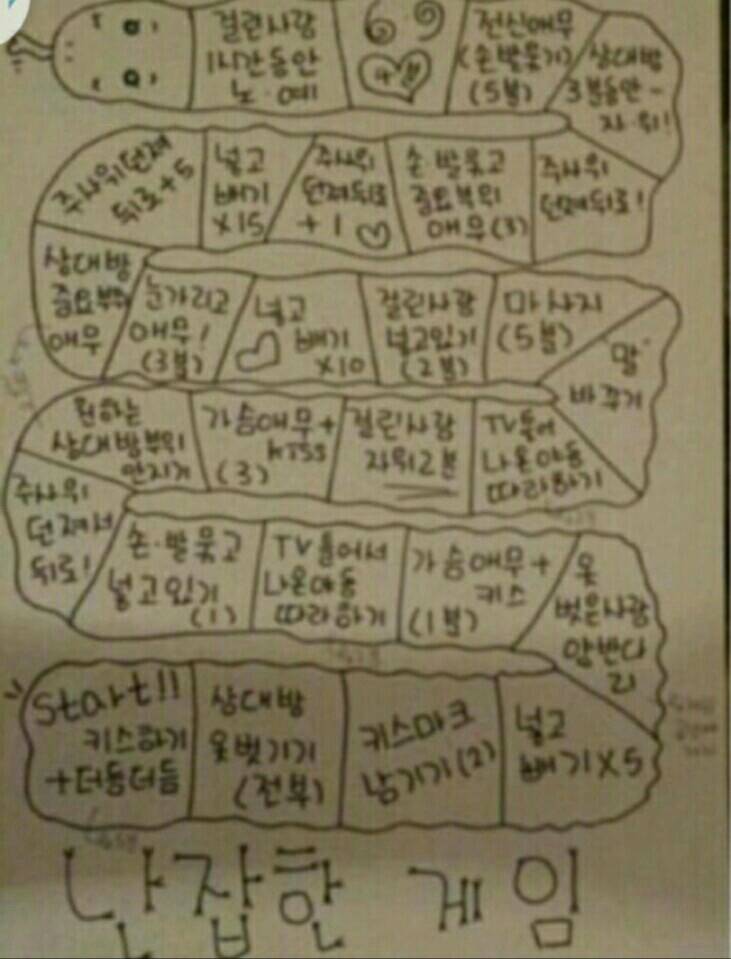 걸린사람
1시간동안
노·예
69
전신애무
(손발묶기)
(5분)
상대방
3분동안-
자·위!
주사위던져
뒤로+5
넣고
빼기
x15
주사위
던져뒤로
+1
손·발묶고
중요부위
애무(3)
주사위
던져뒤로!
상대방
중요부위
애무
눈가리고
애무!
(3분)
넣고
빼기
x10
걸린사람
넣고있기
(2분)
마사지
(5분)
"말"
바꾸기
원하는
상대방부위
만지기
가슴애무+
kiss
(3)
걸린사람
자위2분
TV틀어
나온야동
따라하기
주사위
던져서
뒤로!
손·발묶고
넣고있기
(1)
TV틀어서
나온야동
따라하기
가슴애무+
키스
(1분)
옷
벗은사람
start!!
키스하기
+더듬더듬
상대방
옷벗기기
(전부)
키스마크
남기기(2)
넣고
빼기x5
난잡한 게임